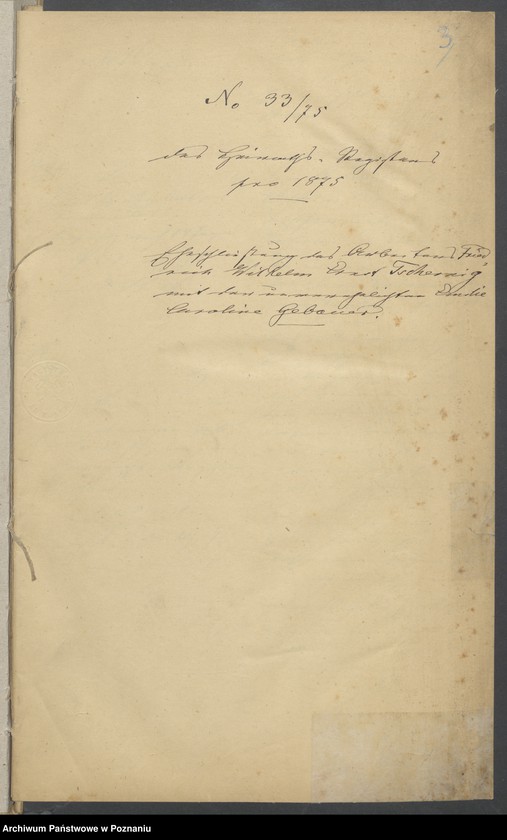 3
No 33/75
des Heiraths-Registers
pro 1875
Eheschließung des Arbeiters Fried
rich Wilhelm Ernst
mit der unverehelichten
Caroline Gebauer.
Archiwum Państwowe w Poznaniu